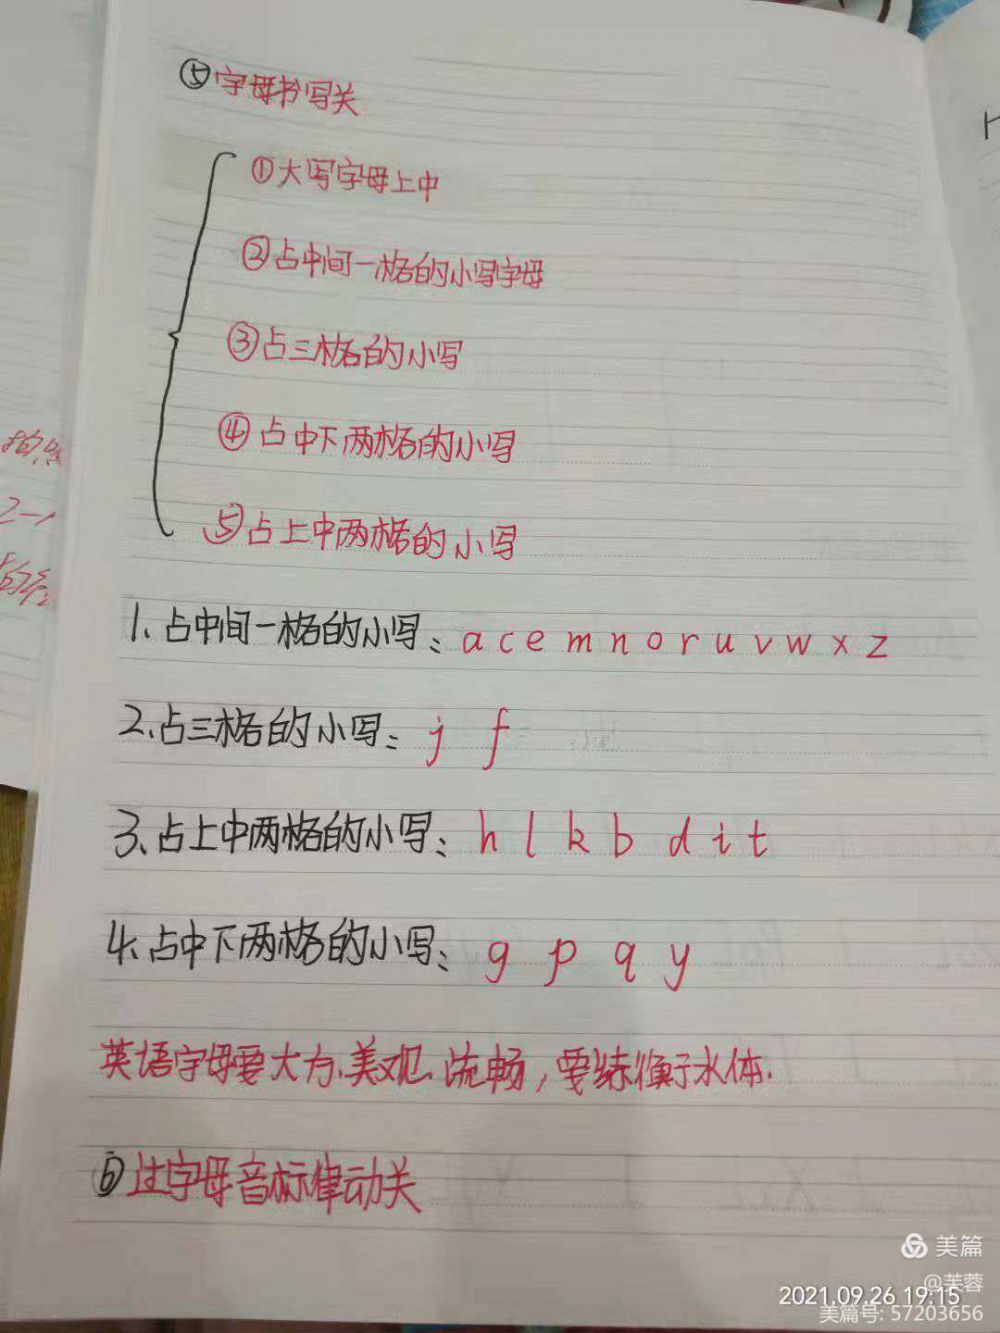 ⑤字母书写关
①大写字母上中
②占中间一格的小写字母
③占三格的小写
④占中下两格的小写
⑤占上中两格的小写
1、占中间一格的小写：a c e m n o r u v w x z
2、占三格的小写：j f
3、占上中两格的小写：h l k b d i t
4、占中下两格的小写：g p q y
英语字母要大方、美观、流畅，要练衡水体.
⑥过字母音标律动关
美篇
@芙蓉
2021.09.26 19:15
美篇号: 57203656